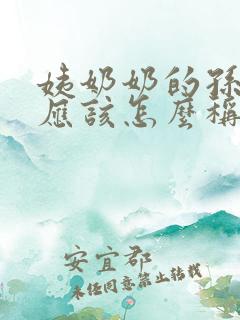 姨奶奶的孫
應該怎麼稱
安宜郡
未经同意禁止转载